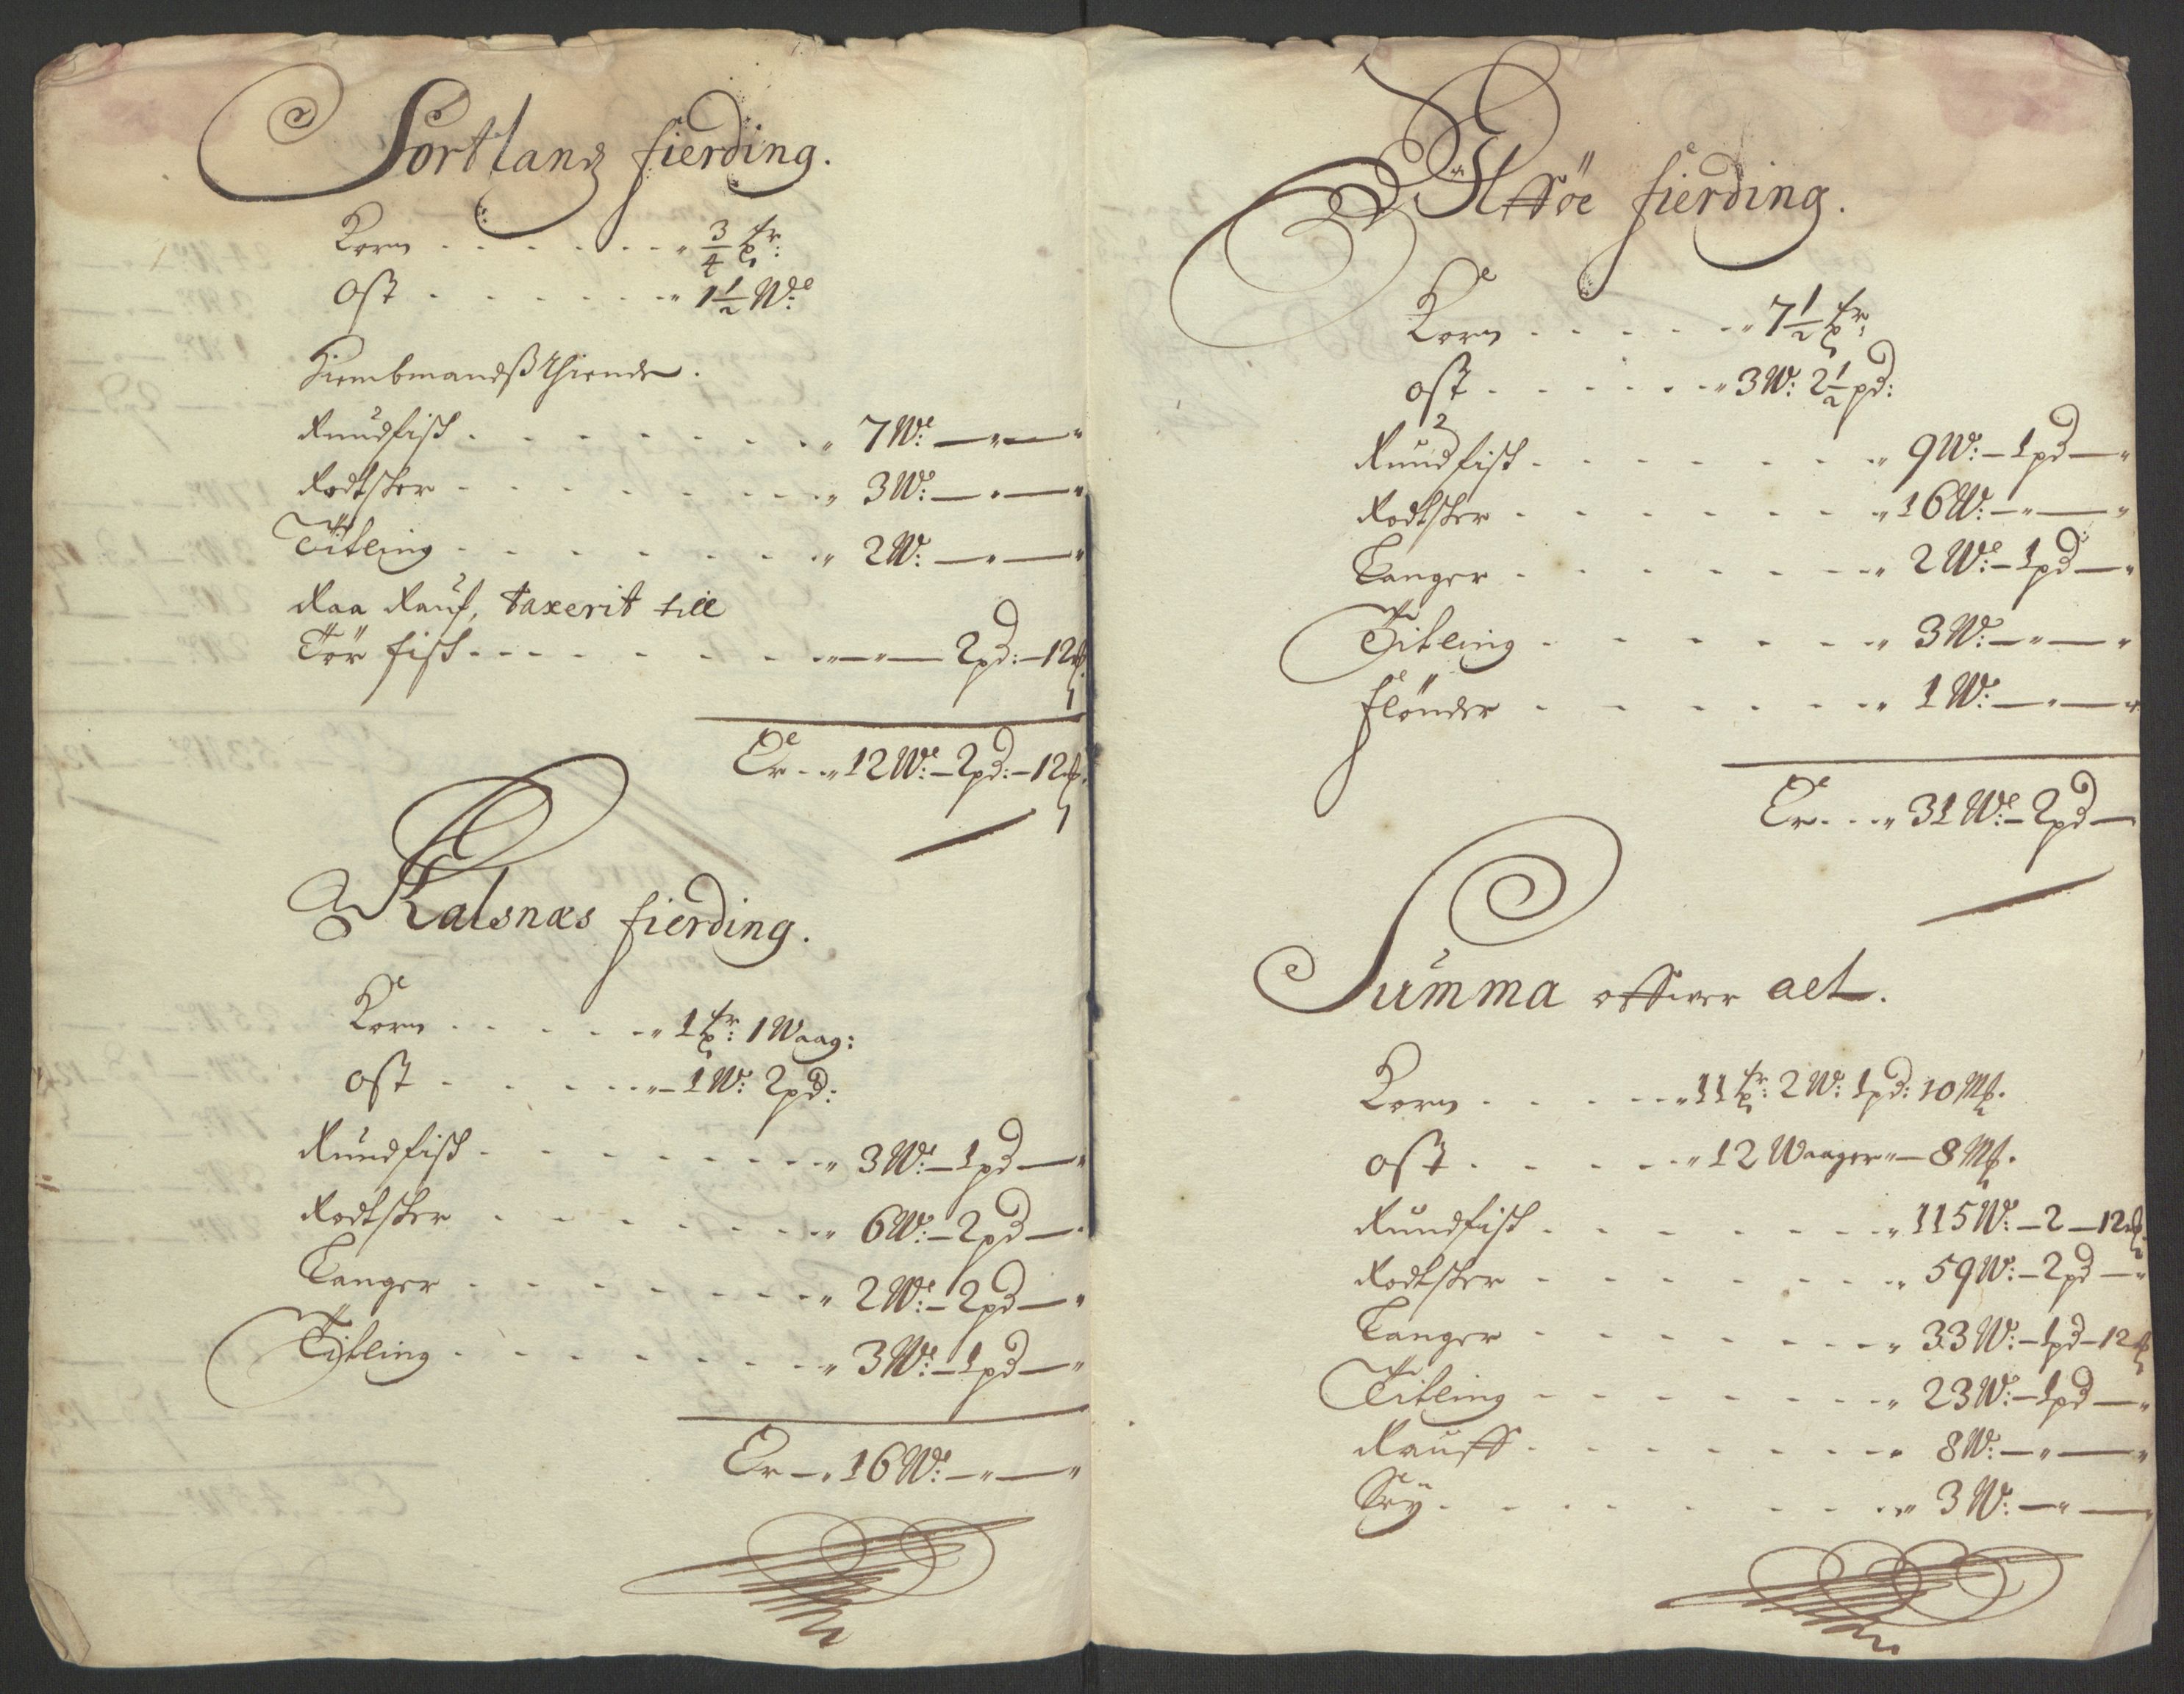 Sortland fierding.
Korn - - - - - - - " 3/4 tr:
Ost - - - - - - - " 1 1/2 W:
Kiembmandß thiende.
Rundfisk - - - - - - - " 7 W: — " — "
Rodtsker - - - - - - - " 3 W: — " — "
Titling - - - - - - - " 2 W: — " — "
Raa Rauf, taxerit till
Tör fisk - - - - - - - — " — 2 pd: — 12 ℔
Er - - " 12 W: — 2 pd: — 12 ℔
Kalsnæs fierding.
Korn - - - - - " 1 tr: 1 Waag:
Ost - - - - - " — 1 W: 2 pd:
Rundfisk - - - - - - - " 3 W: — 1 pd — "
Rodtsker - - - - - - - " 6 W: — 2 pd — "
Langer - - - - - - - " 2 W: — 2 pd — "
Titling - - - - - - - " 3 W: — 1 pd — "
Er — " 16 W: — " — "
fierding.
Korn - - - - - " 7 1/2 tr:
Ost - - - - - " 3 W: 2 1/2 pd:
Rundfisk - - - - - - - " 9 W: — 1 pd — "
Rodtsker - - - - - - - " 16 W: — " — "
Langer - - - - - - - " 2 W: — 1 pd — "
Titling - - - - - - - " 3 W: — " — "
flönder - - - - - - - " 1 W: — " — "
Er - - - " 31 W: — 2 pd —
Summa offver alt.
Korn - - - - - " 11 tr: 2 W: 1 pd: 10 M℔.
Ost - - - - - " 12 Waager " — 8 M℔.
Rundfisk - - - - - - - " 115 W: — 2 — 12 ℔
Rodtsker - - - - - - - " 59 W: — 2 pd — "
Langer - - - - - - - " 33 W: — 1 pd — 12 ℔
Titling - - - - - - - " 23 W: — 1 pd — "
Rauff - - - - - - - " 8 W: — " — "
Sey - - - - - - - " 3 W: — " — "